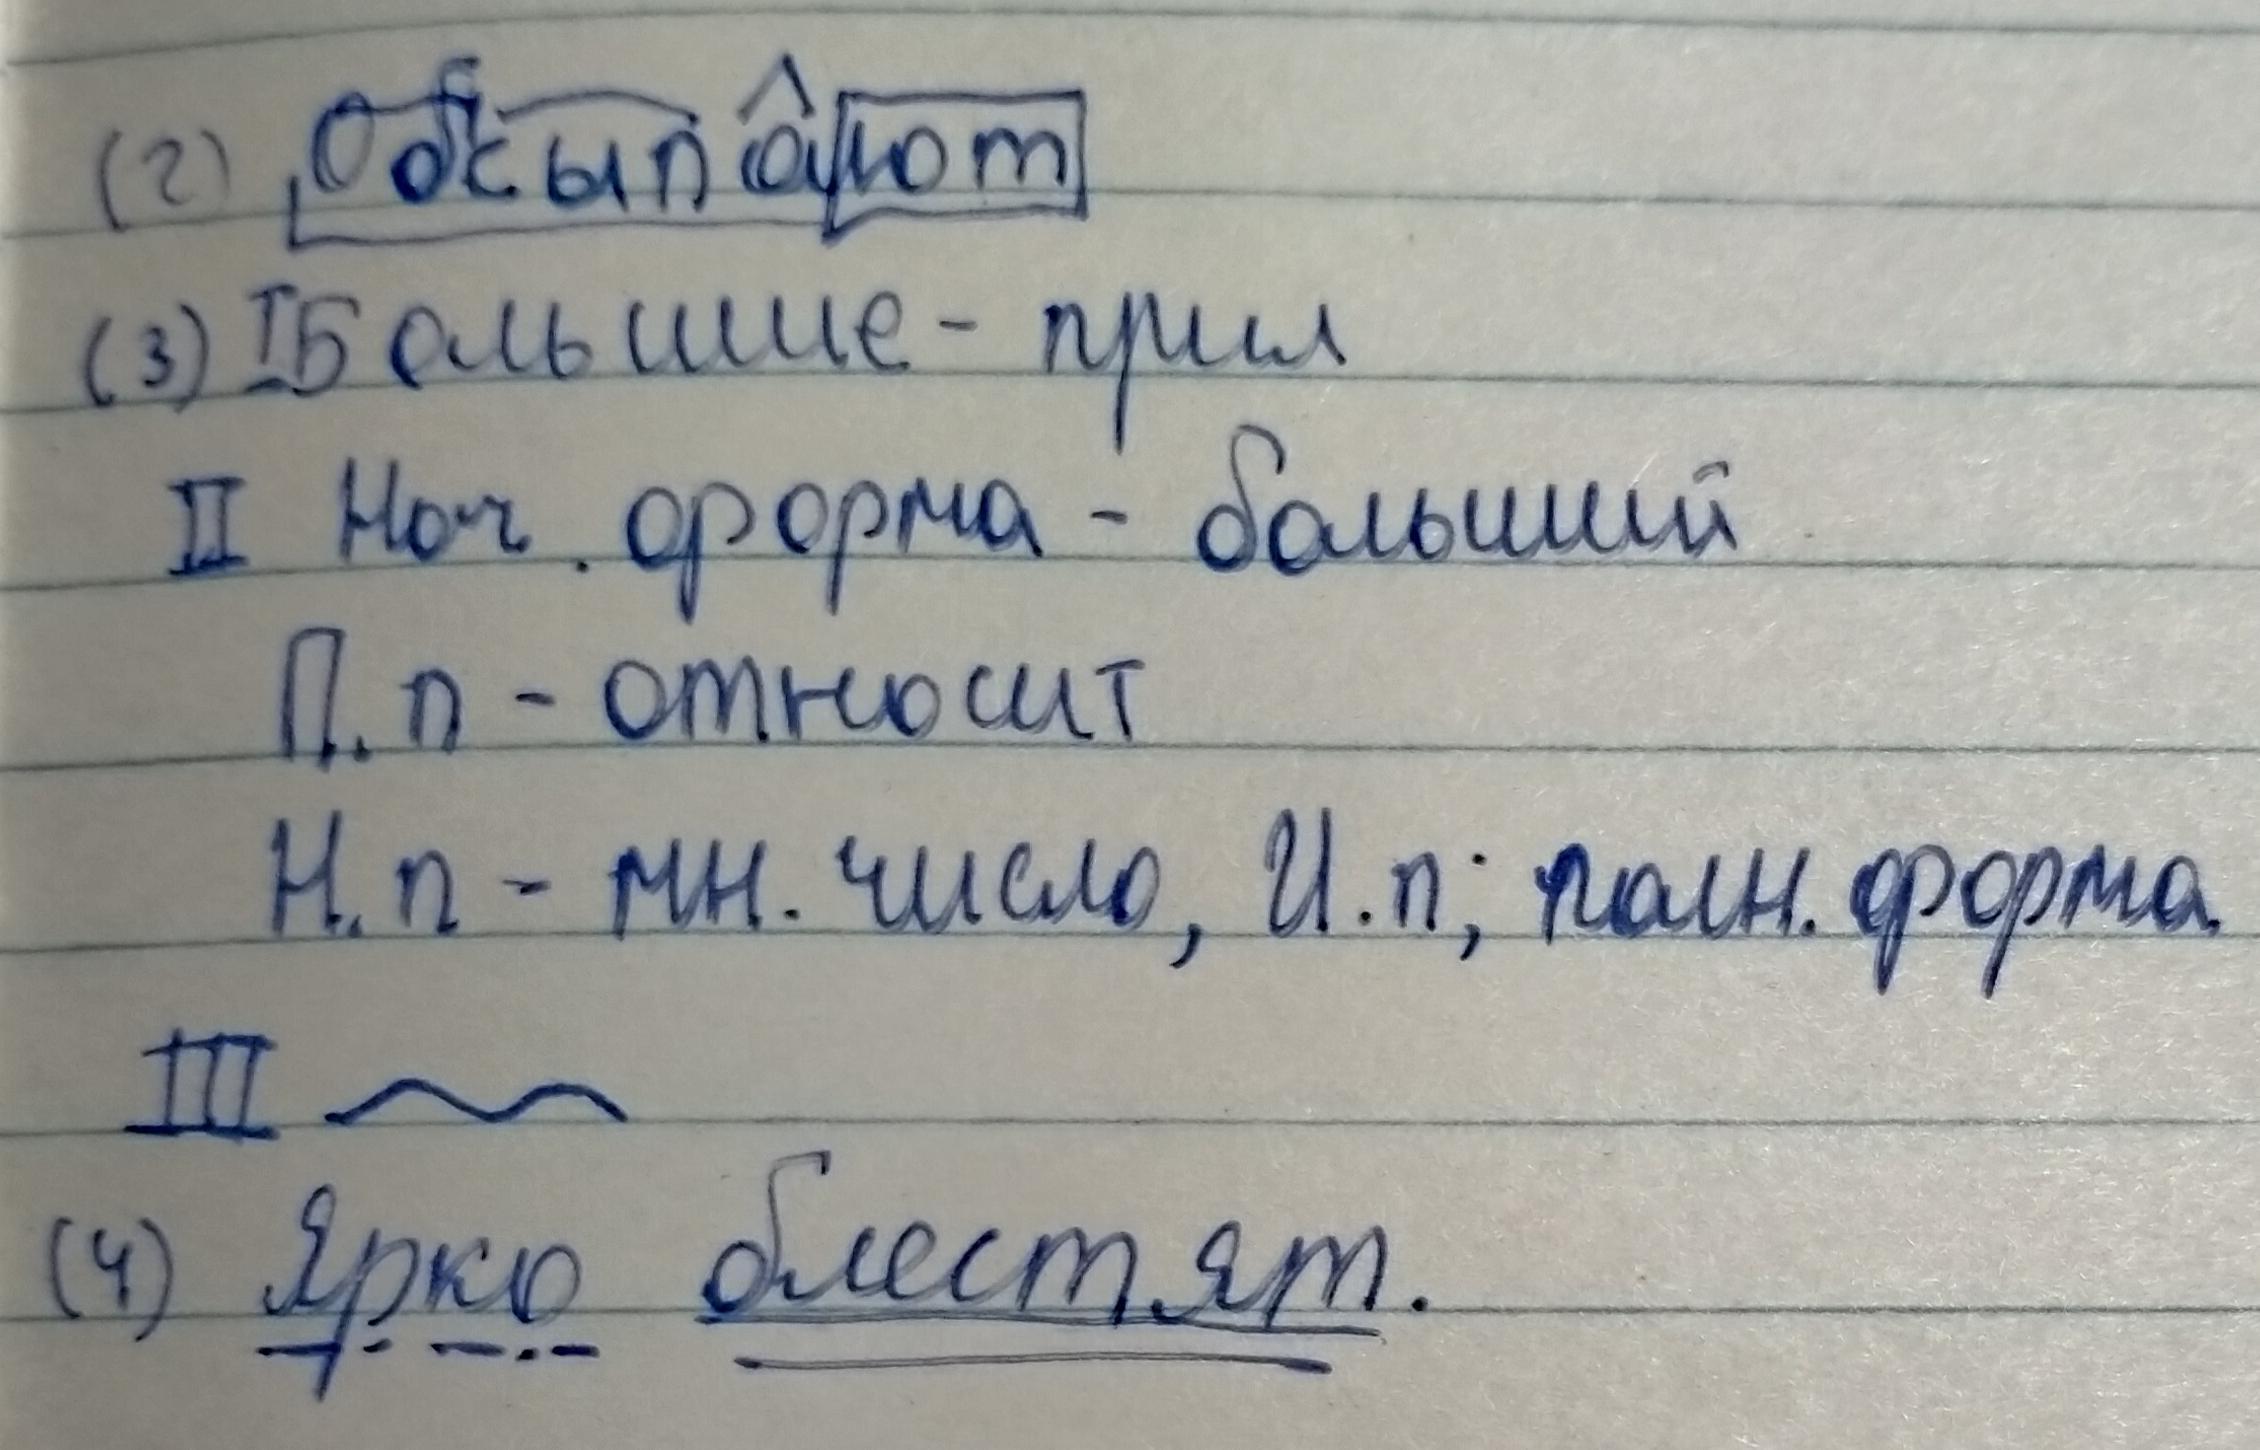 (2) Обсыпают
(3) I Большие - прил
II Нач. форма - больший
П.п - относит
Н.п - мн. число, И.п; полн. форма.
III
(4) Ярко блестят.